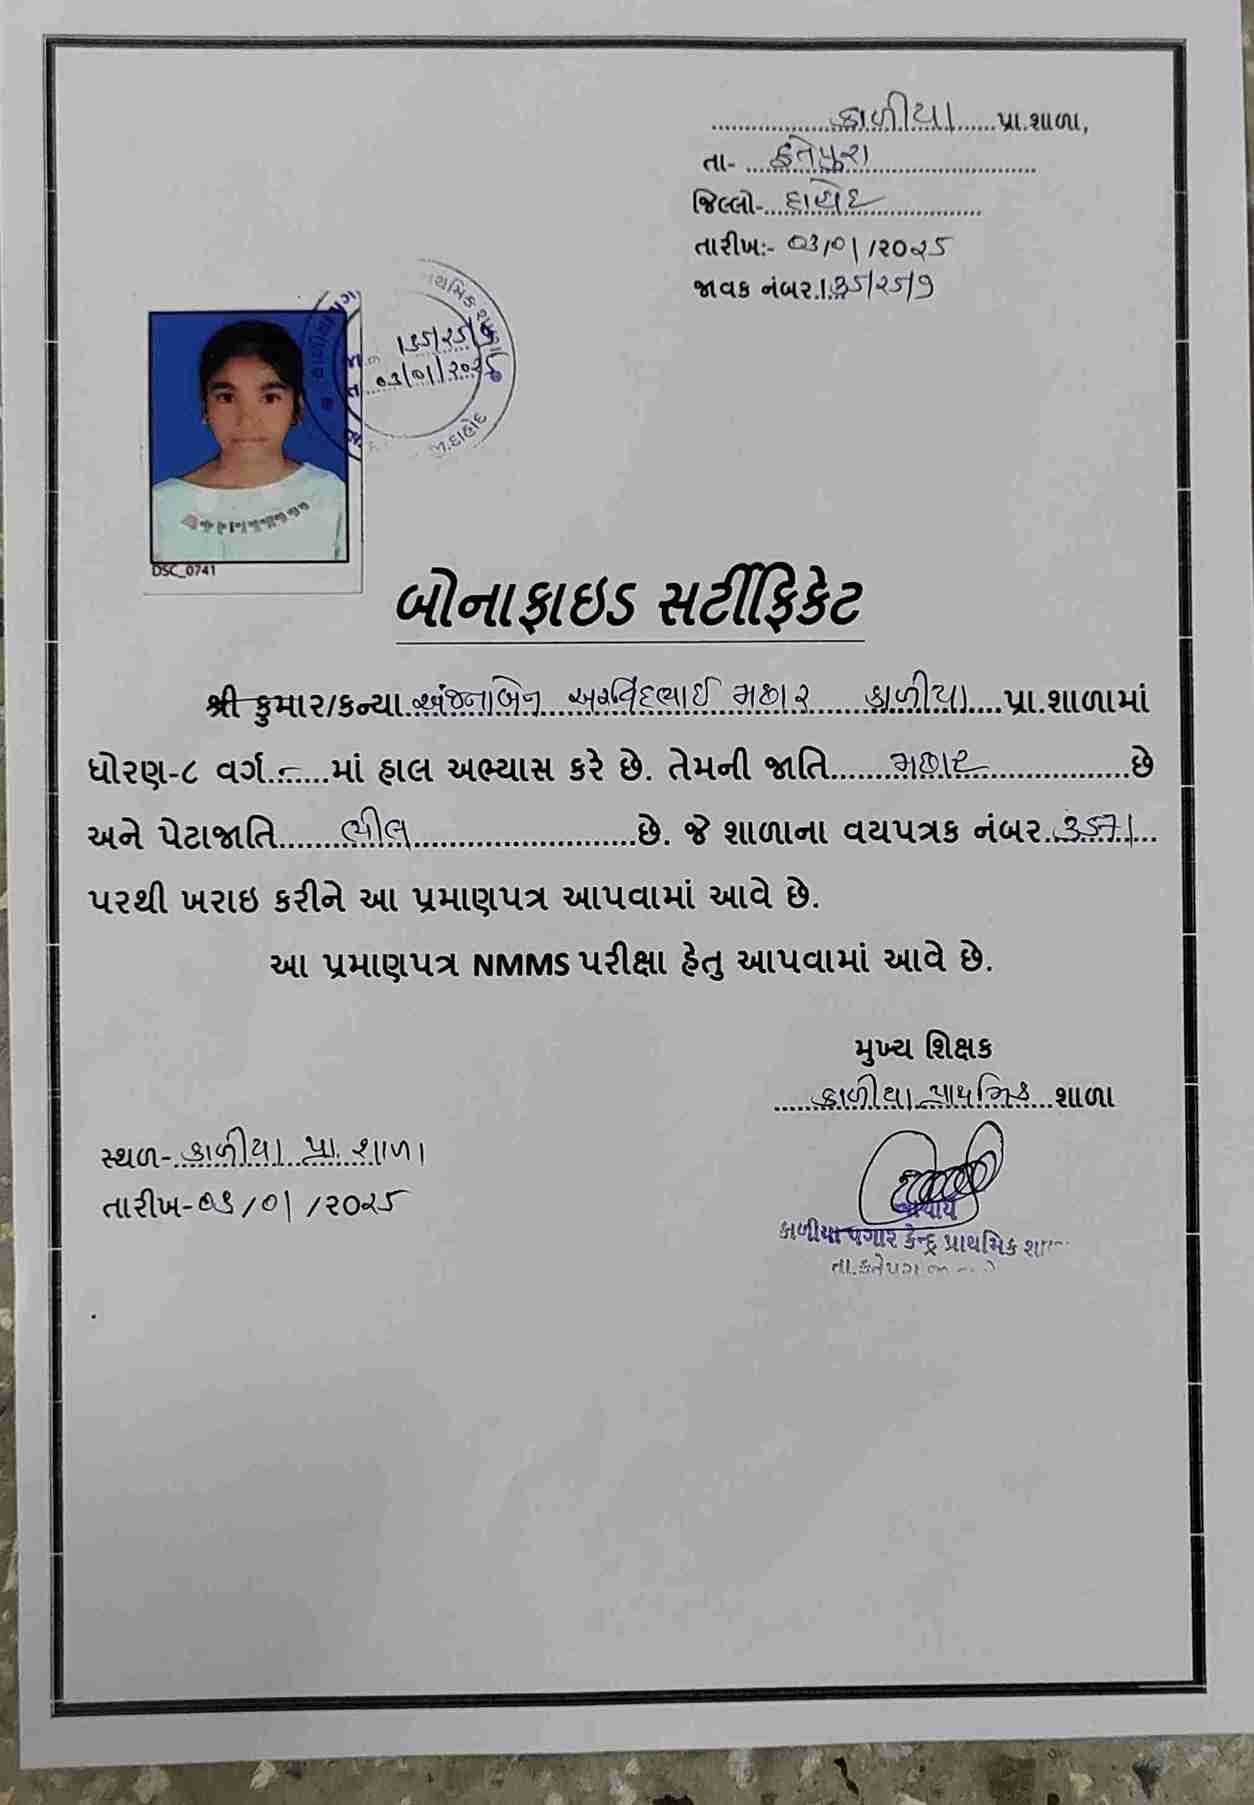 કાળીયા પ્રા.શાળા,
તા- ફતેપુરા
જિલ્લો- દાહોદ
તારીખ:- ૦૩/૦૧/૨૦૨૫
જાવક નંબર.
૦૩/૦૧/૨૦૨૫
જી.દાહોદ
DSC_0741
બોનાફાઇડ સર્ટીફિકેટ
શ્રી કુમાર/કન્યા અંજનાબેન અરવિંદભાઈ મછાર કાળીયા પ્રા.શાળામાં
ધોરણ-૮ વર્ગ - માં હાલ અભ્યાસ કરે છે. તેમની જાતિ મછાર છે
અને પેટાજાતિ ભીલ છે. જે શાળાના વયપત્રક નંબર
પરથી ખરાઇ કરીને આ પ્રમાણપત્ર આપવામાં આવે છે.
આ પ્રમાણપત્ર NMMS પરીક્ષા હેતુ આપવામાં આવે છે.
મુખ્ય શિક્ષક
કાળીયા પ્રાથમિક શાળા
સ્થળ- કાળીયા પ્રા. શાળા
તારીખ-૦૩/૦૧/૨૦૨૫
આચાર્ય
કાળીયા વગાર કેન્દ્ર પ્રાથમિક